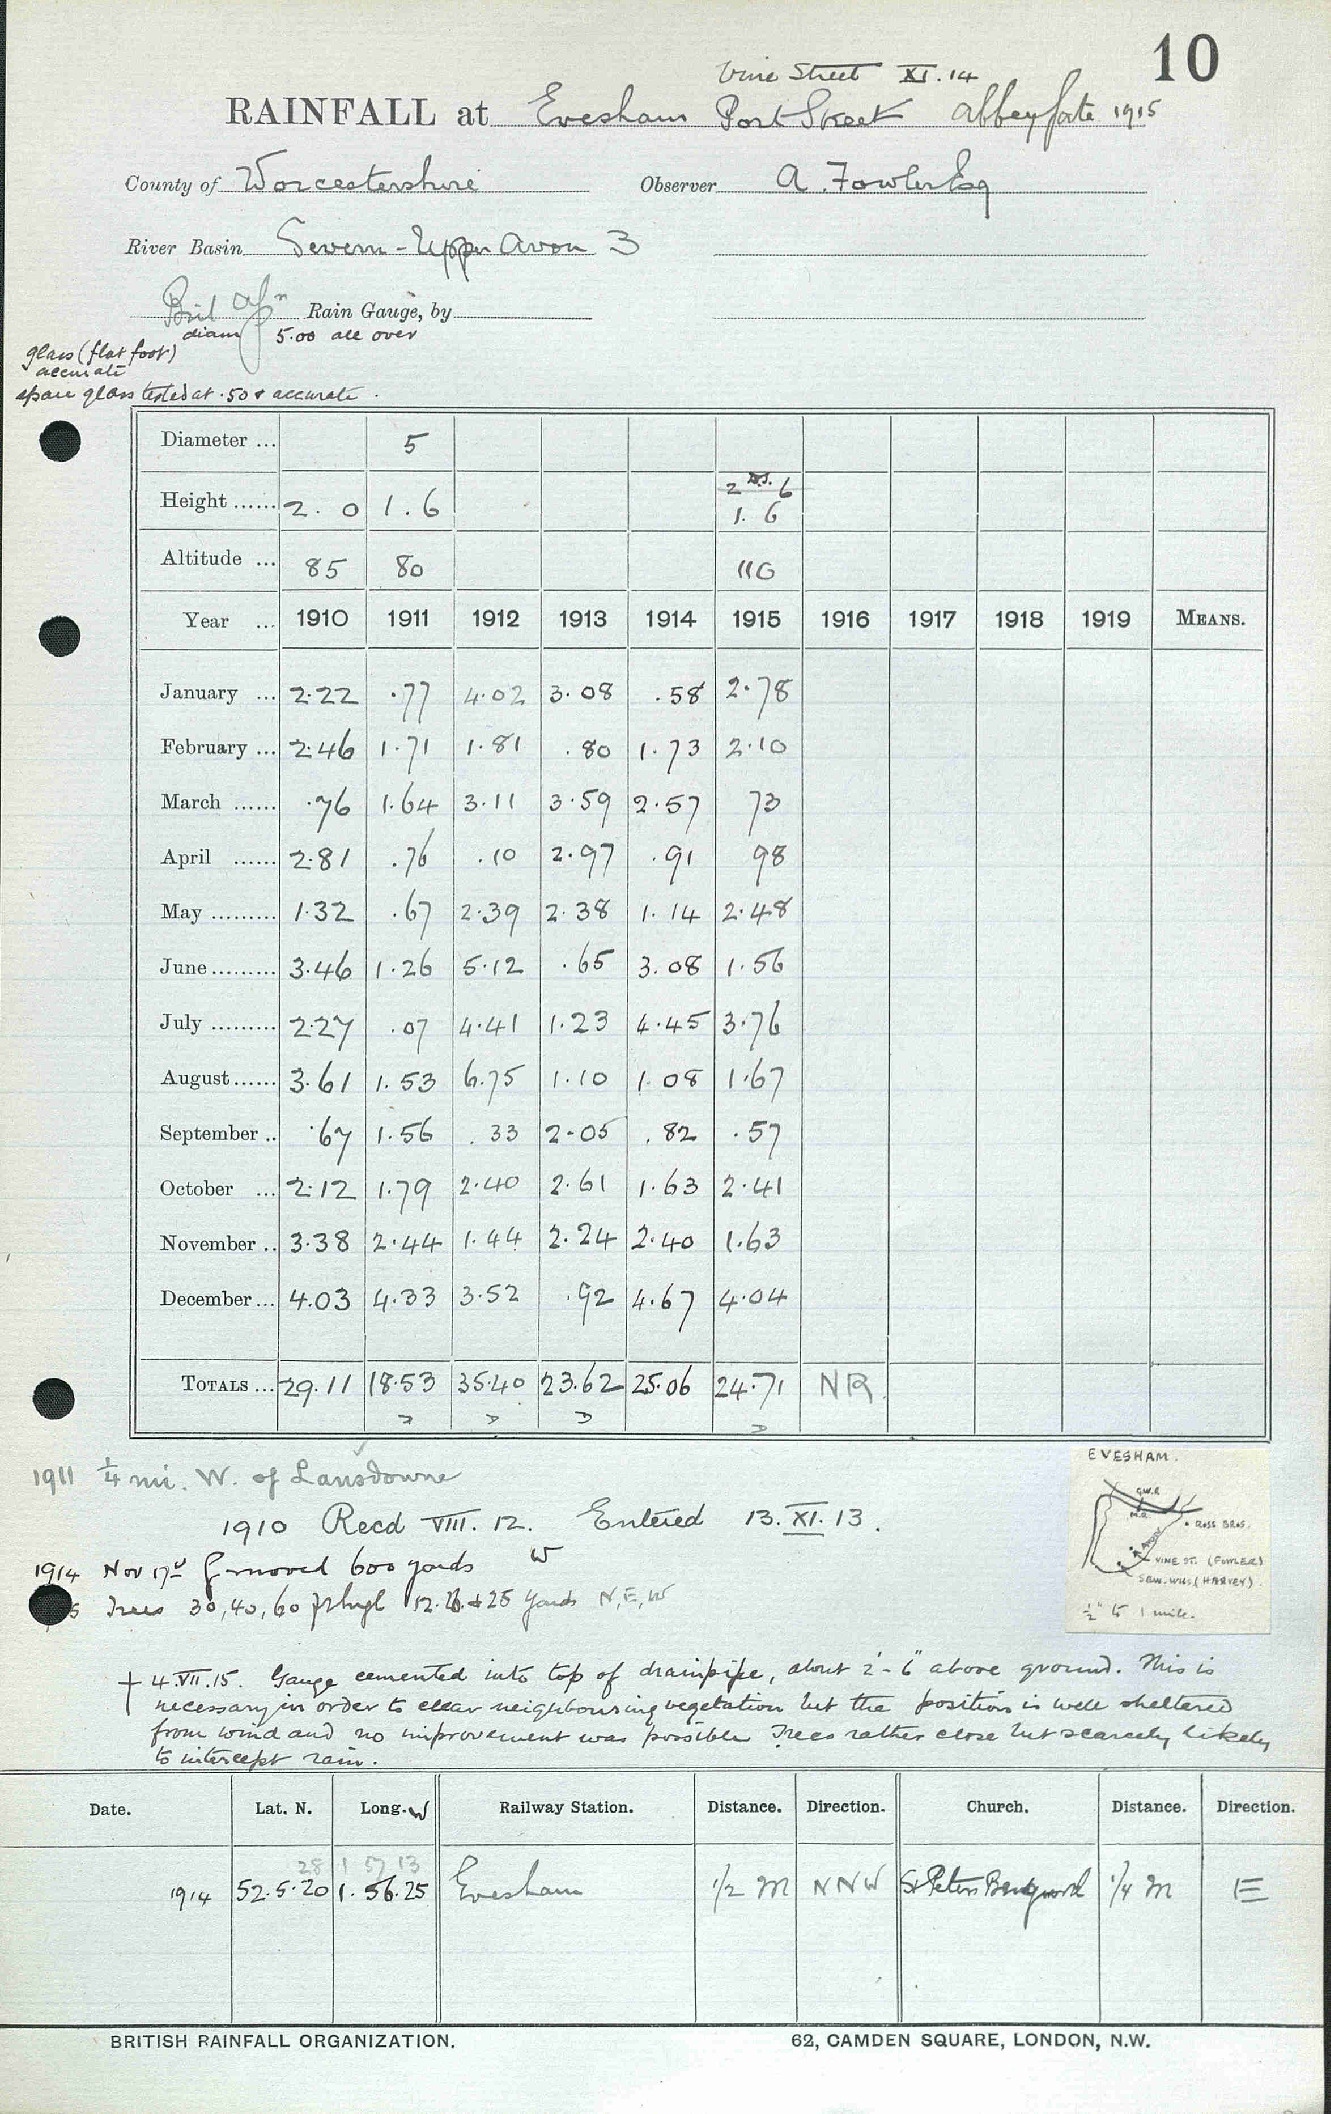 10
Vine Street XI.14
RAINFALL at Evesham Port Street Abbey Gate 1915
County of Worcestershire Observer A. Fowler Esq
River Basin Severn - Upper Avon 3
Rain Gauge, by
diam 5.00 all over
glass (flat foot)
accurate
spare glass tested at .50 & accurate.
Diameter ... 5
2 6
Height ...... 2. 0 1. 6 1. 6
Altitude ... 85 80 110
Year ... 1910 1911 1912 1913 1914 1915 1916 1917 1918 1919 MEANS.
January ... 2.22 .77 4.02 3.08 .58 2.78
February ... 2.46 1.71 1.81 .80 1.73 2.10
March ...... .76 1.64 3.11 3.59 2.57 73
April ...... 2.81 .76 .10 2.97 .91 98
May ......... 1.32 .67 2.39 2.38 1.14 2.48
June ......... 3.46 1.26 5.12 .65 3.08 1.56
July ......... 2.27 .07 4.41 1.23 4.45 3.76
August ...... 3.61 1.53 6.75 1.10 1.08 1.67
September .. .67 1.56 .33 2.05 .82 .57
October ... 2.12 1.79 2.40 2.61 1.63 2.41
November .. 3.38 2.44 1.44 2.24 2.40 1.63
December ... 4.03 4.33 3.52 .92 4.67 4.04
TOTALS ... 29.11 18.53 35.40 23.62 25.06 24.71 NR
1911 ¼ mi. W. of Lansdowne
1910 Recd VIII. 12. Entered 13. XI. 13.
1914 Nov 17th G moved 600 yards W
Trees 30, 40, 60 ft high 12. & 25 yards N, E, W
EVESHAM.
G.W.R
M.R.
ROSS BROS.
R. AVON
VINE ST. (FOWLER)
SEW. WKS (HARVEY)
½" to 1 mile.
† 4.VII.15. Gauge cemented into top of drainpipe, about 2'-6" above ground. This is
necessary in order to clear neighbouring vegetation but the position is well sheltered
from wind and no improvement was possible Trees rather close but scarcely likely
to intercept rain.
Date. Lat. N. Long. W Railway Station. Distance. Direction. Church. Distance. Direction.
28 1 57 13
1914 52.5.20 1.56.25 Evesham ½ M NNW St Peters Bengeworth ¼ M E
BRITISH RAINFALL ORGANIZATION. 62, CAMDEN SQUARE, LONDON, N.W.